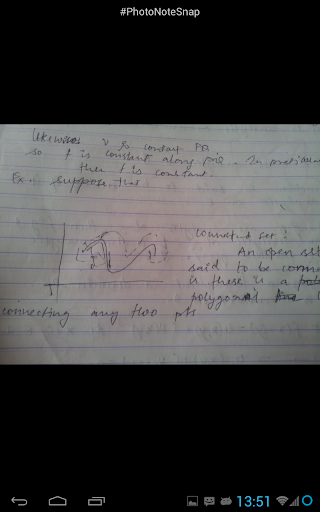 #PhotoNoteSnap
Likewise v is constant PQ
so f is constant along
then f is constant
Ex. suppose that
connected set :
An open set
said to be
is there is a
polygonal
connecting any two pts
13:51